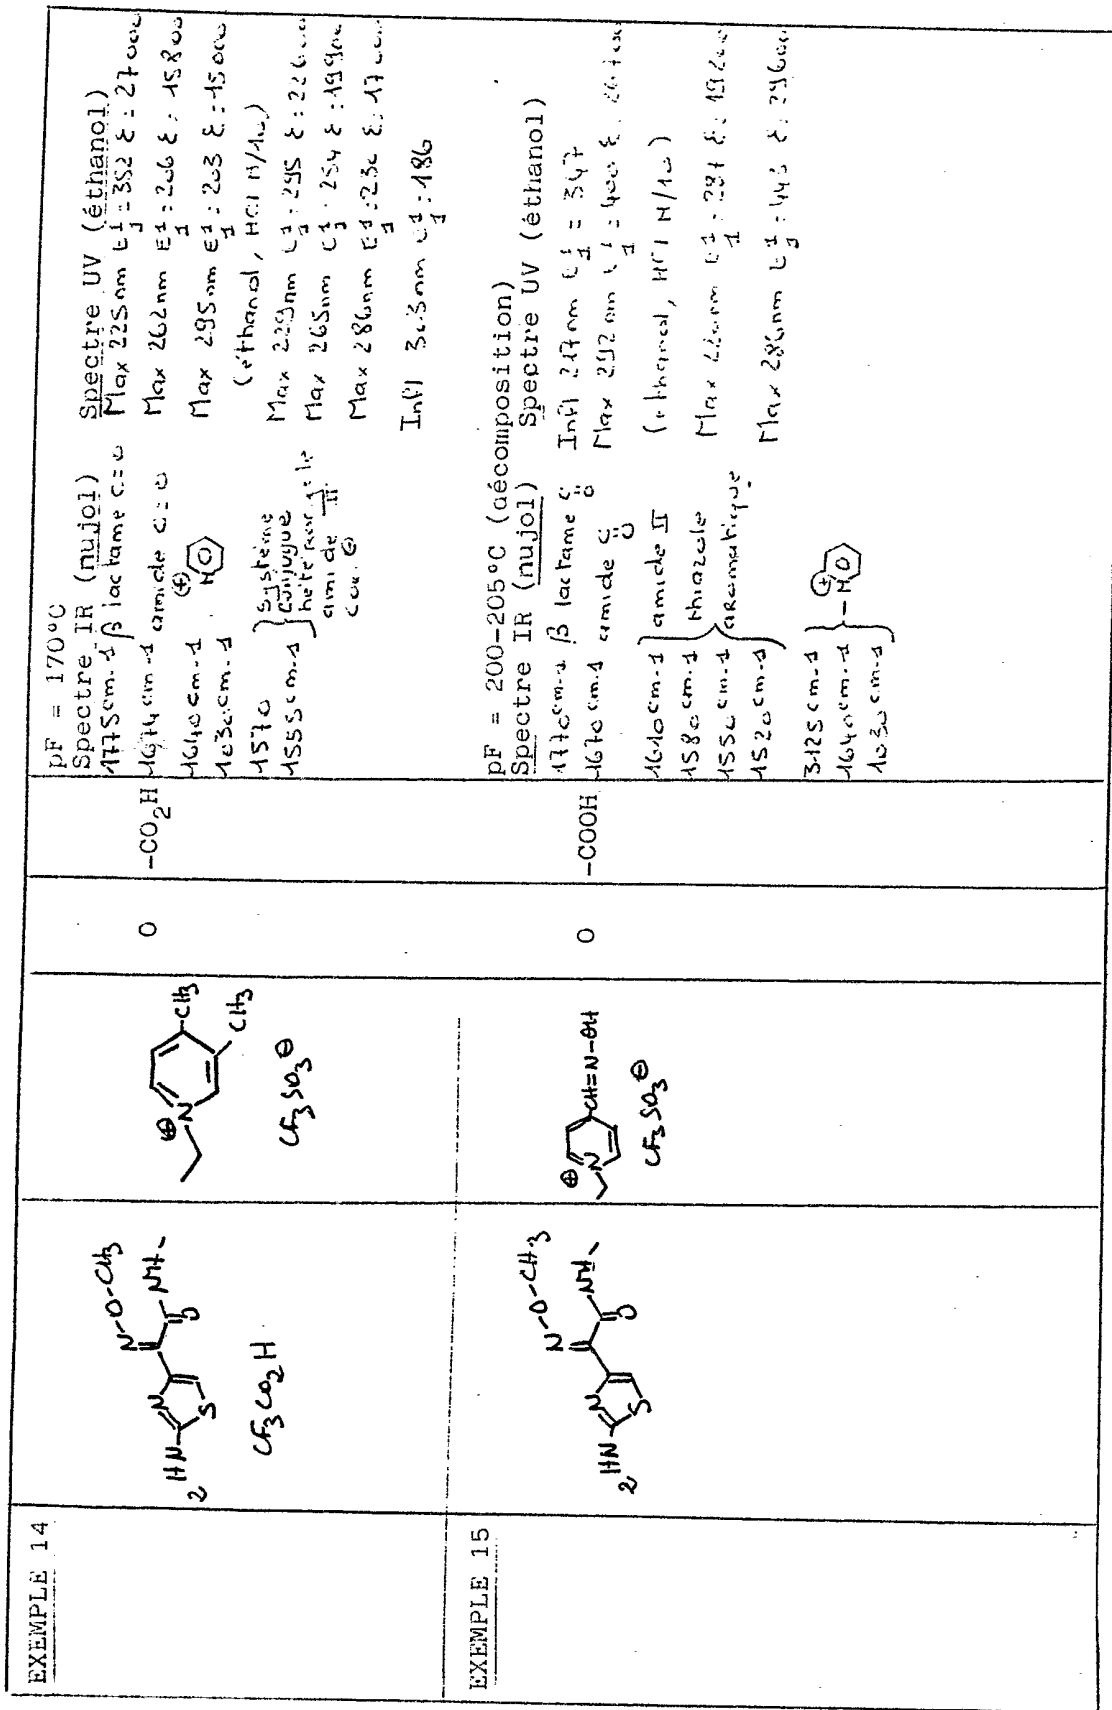 EXEMPLE 14
H₂N
N
S
N-O-CH3
O
NH-
CF3CO2H
⊕
N
CH3
CH3
CF3SO3⊖
O
-CO2H
pF = 170°C
Spectre IR (nujol)
1775cm-1 β lactame C=O
1674cm-1 amide C=O
1640cm-1
1030cm-1
⊕
N
1570
1555cm-1
système
conjugué
amide II
Spectre UV (éthanol)
Max 225nm E11=352 ε:27000
Max 262nm E11:206 ε:15800
Max 295nm E11:203 ε:15000
(éthanol, HCl N/10)
Max 229nm E11:295
Max 265nm E11:254
Max 286nm E11:230
Infl 303nm E11:186
EXEMPLE 15
H₂N
N
S
N-O-CH3
O
NH-
⊕
N
CH=N-OH
CF3SO3⊖
O
-COOH
pF = 200-205°C (décomposition)
Spectre IR (nujol)
1770cm-1 β lactame C=O
1670cm-1 amide C=O
1610cm-1
1580cm-1
1550cm-1
1520cm-1
amide II
thiazole
aromatique
3125cm-1
1640cm-1
1030cm-1
⊕
-N
Spectre UV (éthanol)
Infl 217nm E11=347
Max 292nm E11:400
(éthanol, HCl N/10)
Max 220nm E11:287
Max 286nm E11:443 ε:29600